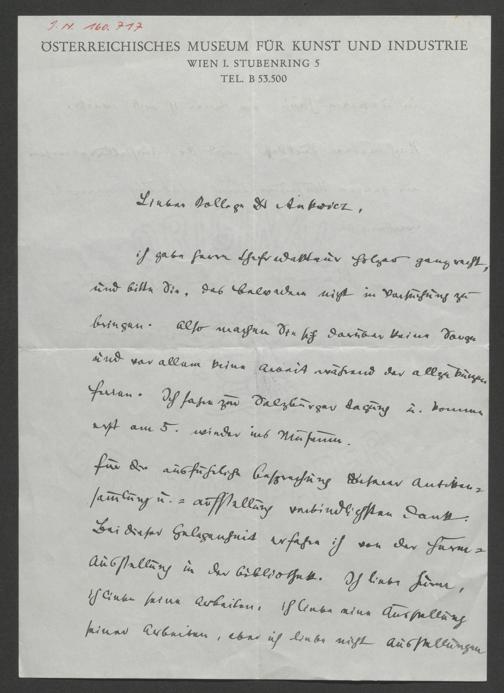 I.N. 160.717
ÖSTERREICHISCHES MUSEUM FÜR KUNST UND INDUSTRIE
WIEN I. STUBENRING 5
TEL. B 53.500
Lieber Kollege Dr Ankwicz,
ich gebe Herrn Chefredakteur Holzer ganz recht,
und bitte Sie, das Belvedere nicht in Verlegung zu
bringen. Also machen Sie sich darüber keine Sorge
und vor allem keine Arbeit während der allzu kurzen
Ferien. Ich fahre zur Salzburger Tagung u. komme
erst am 5. wieder ins Museum.
Für die ausführliche Besprechung meiner Antiken-
sammlung u. = aufstellung verbindlichsten Dank.
Bei dieser Gelegenheit erfahre ich von der
Ausstellung in der Bibliothek. Ich liebe
ich liebe seine Arbeiten, ich liebe eine Ausstellung
seiner Arbeiten, aber ich liebe nicht Ausstellungen